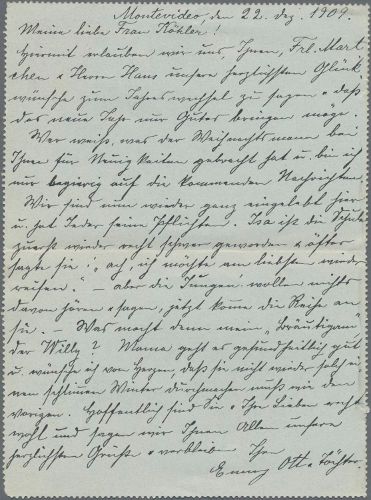 Montevideo, den 22. Dez. 1909.
Meine liebe Frau Köhler!
Hiermit erlauben wir uns, Ihnen, Frl. Mart-
chen u Herrn Hans unsere herzlichsten Glück-
wünsche zum Jahreswechsel zu sagen u daß
das neue Jahr nur Gutes bringen möge.
Wer weiß, was der Weihnachtsmann bei
Ihnen für Neuigkeiten gebracht hat u. bin ich
nur begierig auf die kommenden Nachrichten.
Wir sind nun wieder ganz eingelebt hier
u. hat Jeder seine Pflichten. Isa ist die Schule
zuerst wieder recht schwer geworden u öfter
sagte sie: "ach, ich möchte am liebsten wieder
reisen." — aber die Jungen wollen nichts
davon hören u sagen, jetzt käme die Reise an
sie. — Was macht denn mein "Bräutigam"
der Willy? Mama geht es gesundheitlich gut
u. wünsche ich von Herzen, daß sie nicht wieder solch ei-
nen schlimmen Winter durchmachen muß wie den
vorigen. Hoffentlich sind Sie u Ihre Lieben recht
wohl und sagen wir Ihnen Allen unsere
herzlichsten Grüße u verbleiben Ihre
Emmy Ott u Töchter.